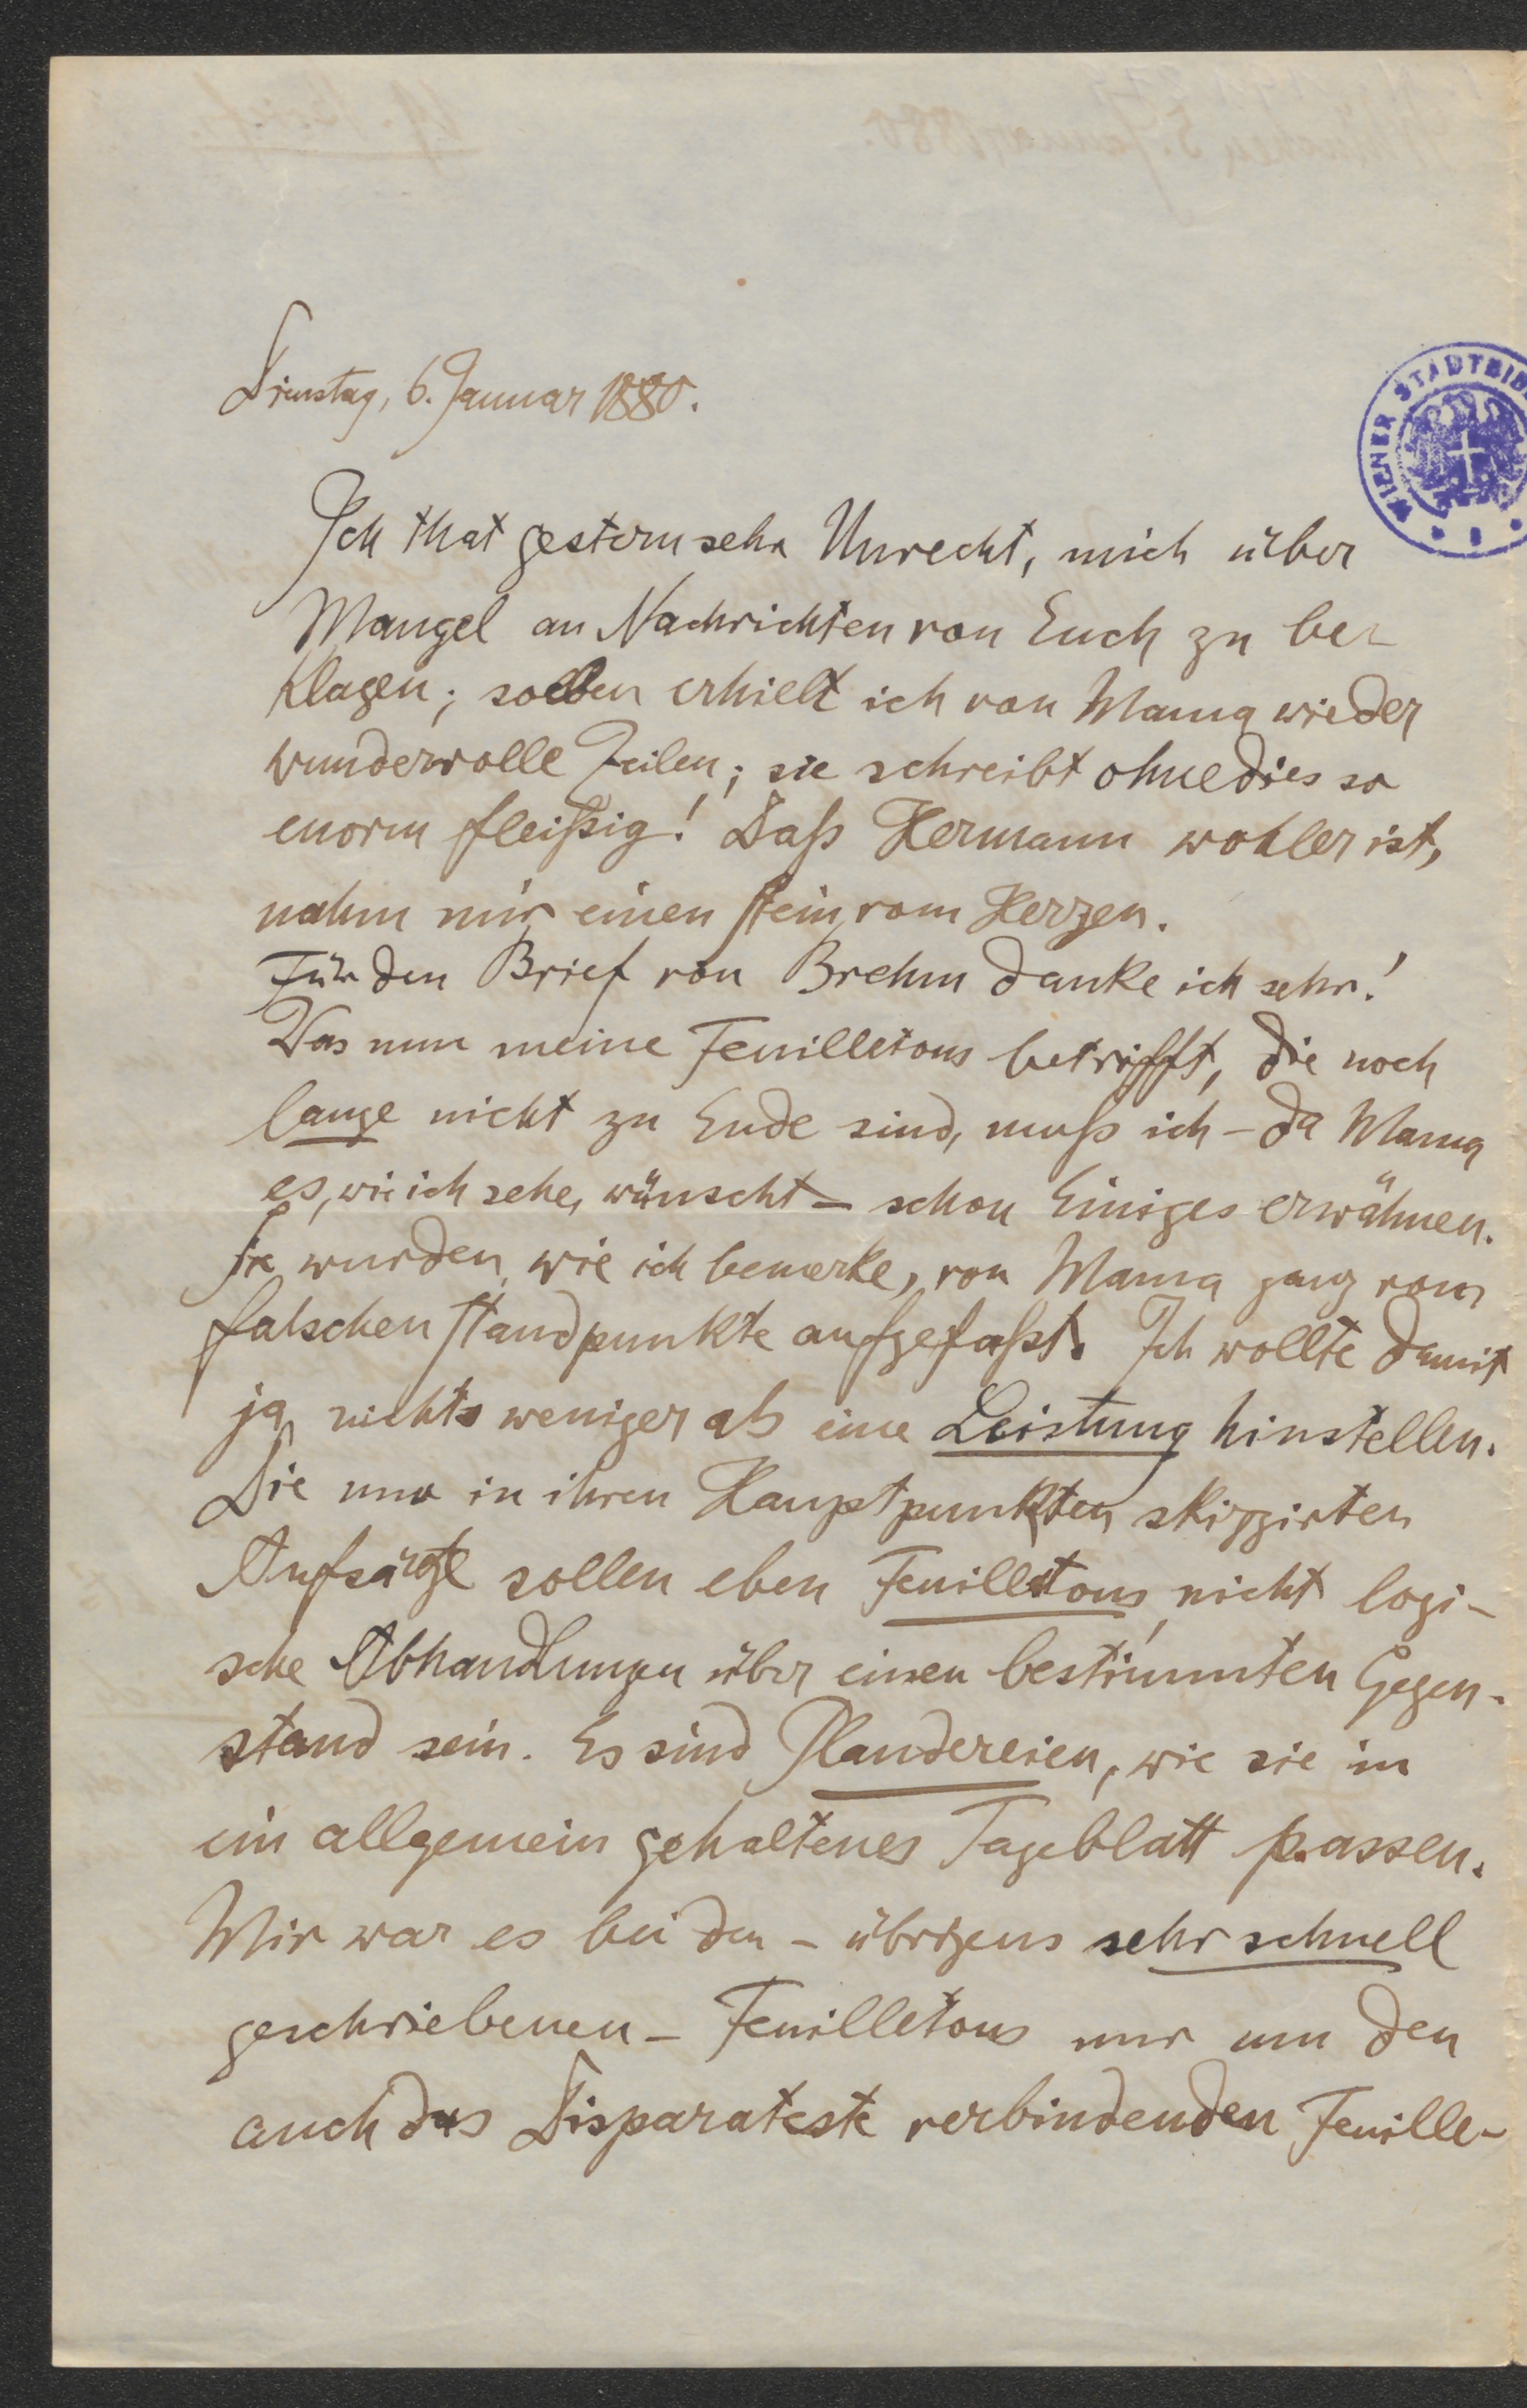 Dienstag, 6. Januar 1880.
WIENER STADTBIB
Ich that gestern sehr Unrecht, mich über
Mangel an Nachrichten von Euch zu be-
klagen; soeben erhielt ich von Mama wieder
wundervolle Zeilen; sie schreibt ohnedies so
enorm fleißig! Daß Hermann wohler ist,
nahm mir einen Stein vom Herzen.
Für den Brief von Brehm danke ich sehr!
Was nun meine Feuilletons betrifft, die noch
lange nicht zu Ende sind, muß ich – da Mama
es, wie ich sehe, wünscht – schon Einiges erwähnen.
Sie wurden, wie ich bemerke, von Mama ganz vom
falschen Standpunkte aufgefaßt. Ich wollte damit
ja nichts weniger als eine Leistung hinstellen.
Die nur in ihren Hauptpunkten skizzirten
Aufsätze sollen eben Feuilletons, nicht logi-
sche Abhandlungen über einen bestimmten Gegen-
stand sein. Es sind Plaudereien, wie sie in
ein allgemein gehaltenes Tageblatt passen.
Mir war es bei den – übrigens sehr schnell
geschriebenen – Feuilletons nur um den
auch das Disparateste verbindenden Feuille-